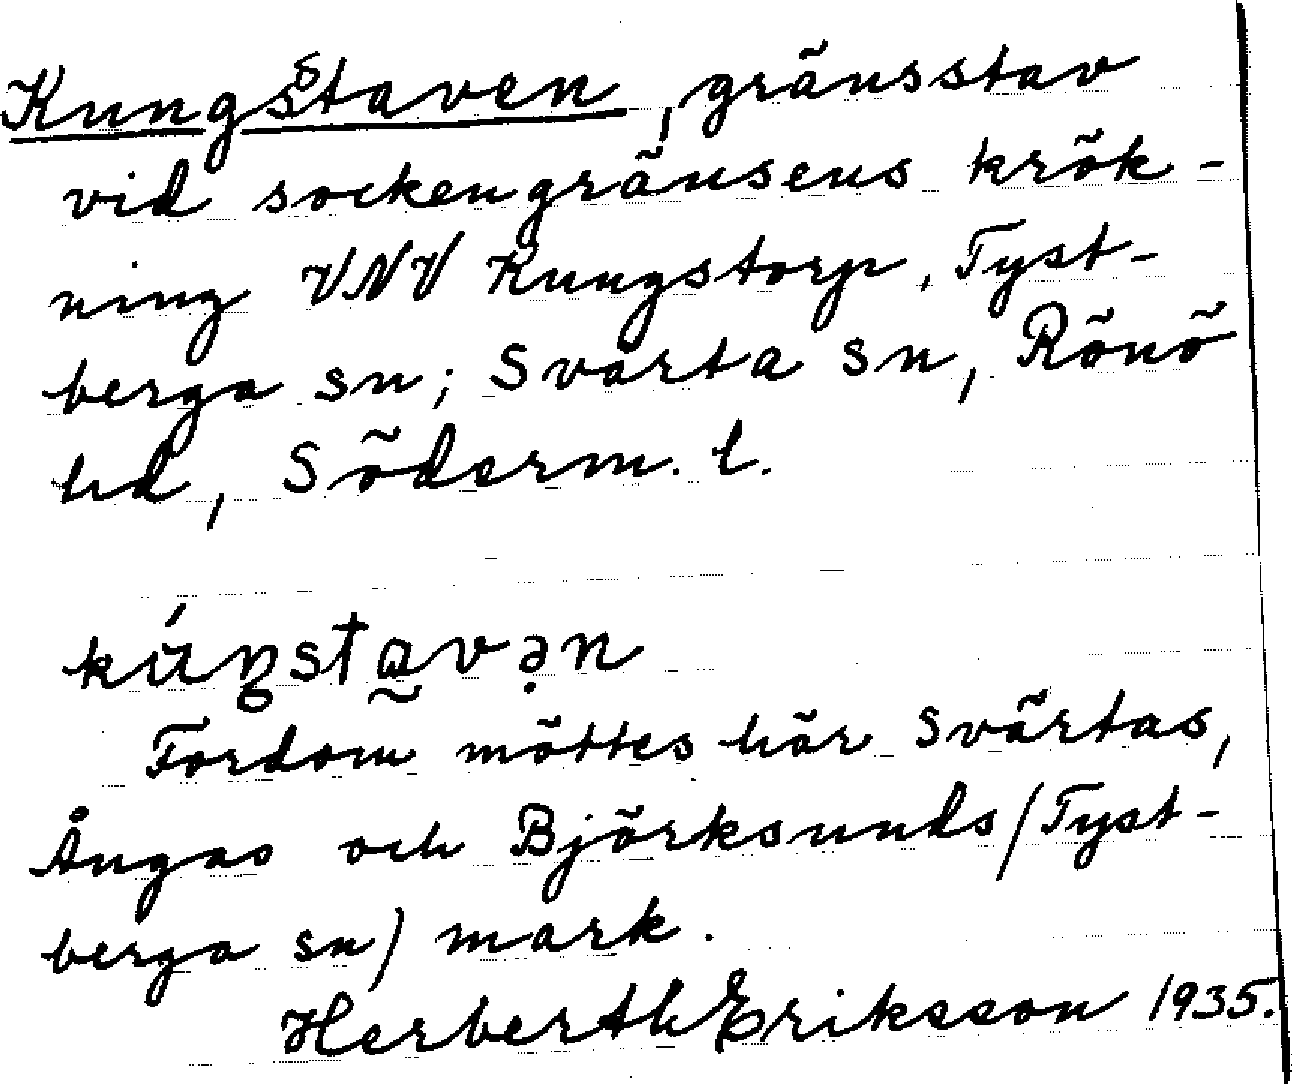 Kungsstaven, gränsstav
vid sockengränsens krök-
ning VNV Kungstorp, Tyst-
berga sn; Svärta sn, Rönö
hd, Söderm. l.
kúŋstavən
Fordom möttes här Svärtas,
Ångas och Björksunds (Tyst-
berga sn) mark.
Herberth Eriksson 1935.